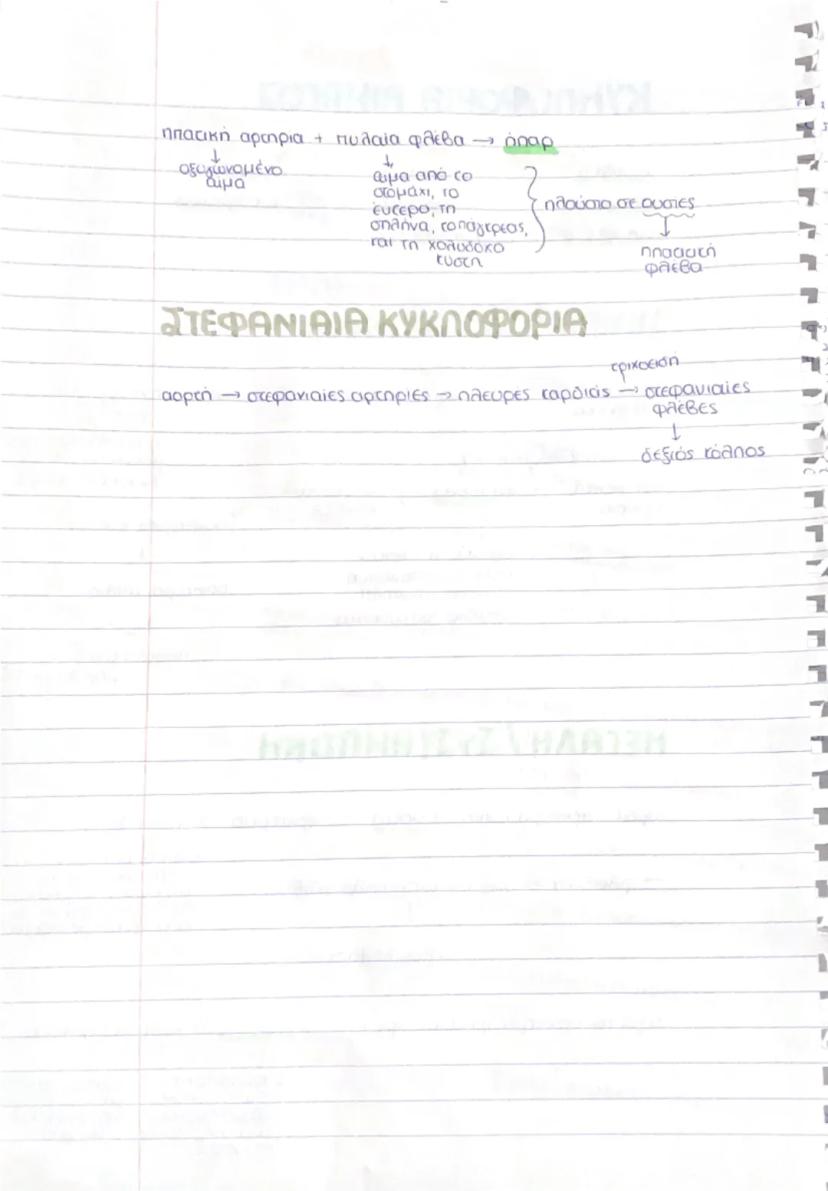 ηπατική αρτηρία + πυλαία φλέβα → ήπαρ
↓
οξυγωνομένο
αίμα
↓
αίμα από το
στομάχι, το
έντερο, τη
σπλήνα, το πάγκρεας,
και τη χοληδόχο
κύστη
πλούσιο σε ουσίες
↓
ηπατική
φλέβα
ΣΤΕΦΑΝΙΑΙΑ ΚΥΚΛΟΦΟΡΙΑ
τριχοειδή
αορτή → στεφανιαίες αρτηρίες → πλευρές καρδιάς → στεφανιαίες
φλέβες
↓
δεξιός κόλπος